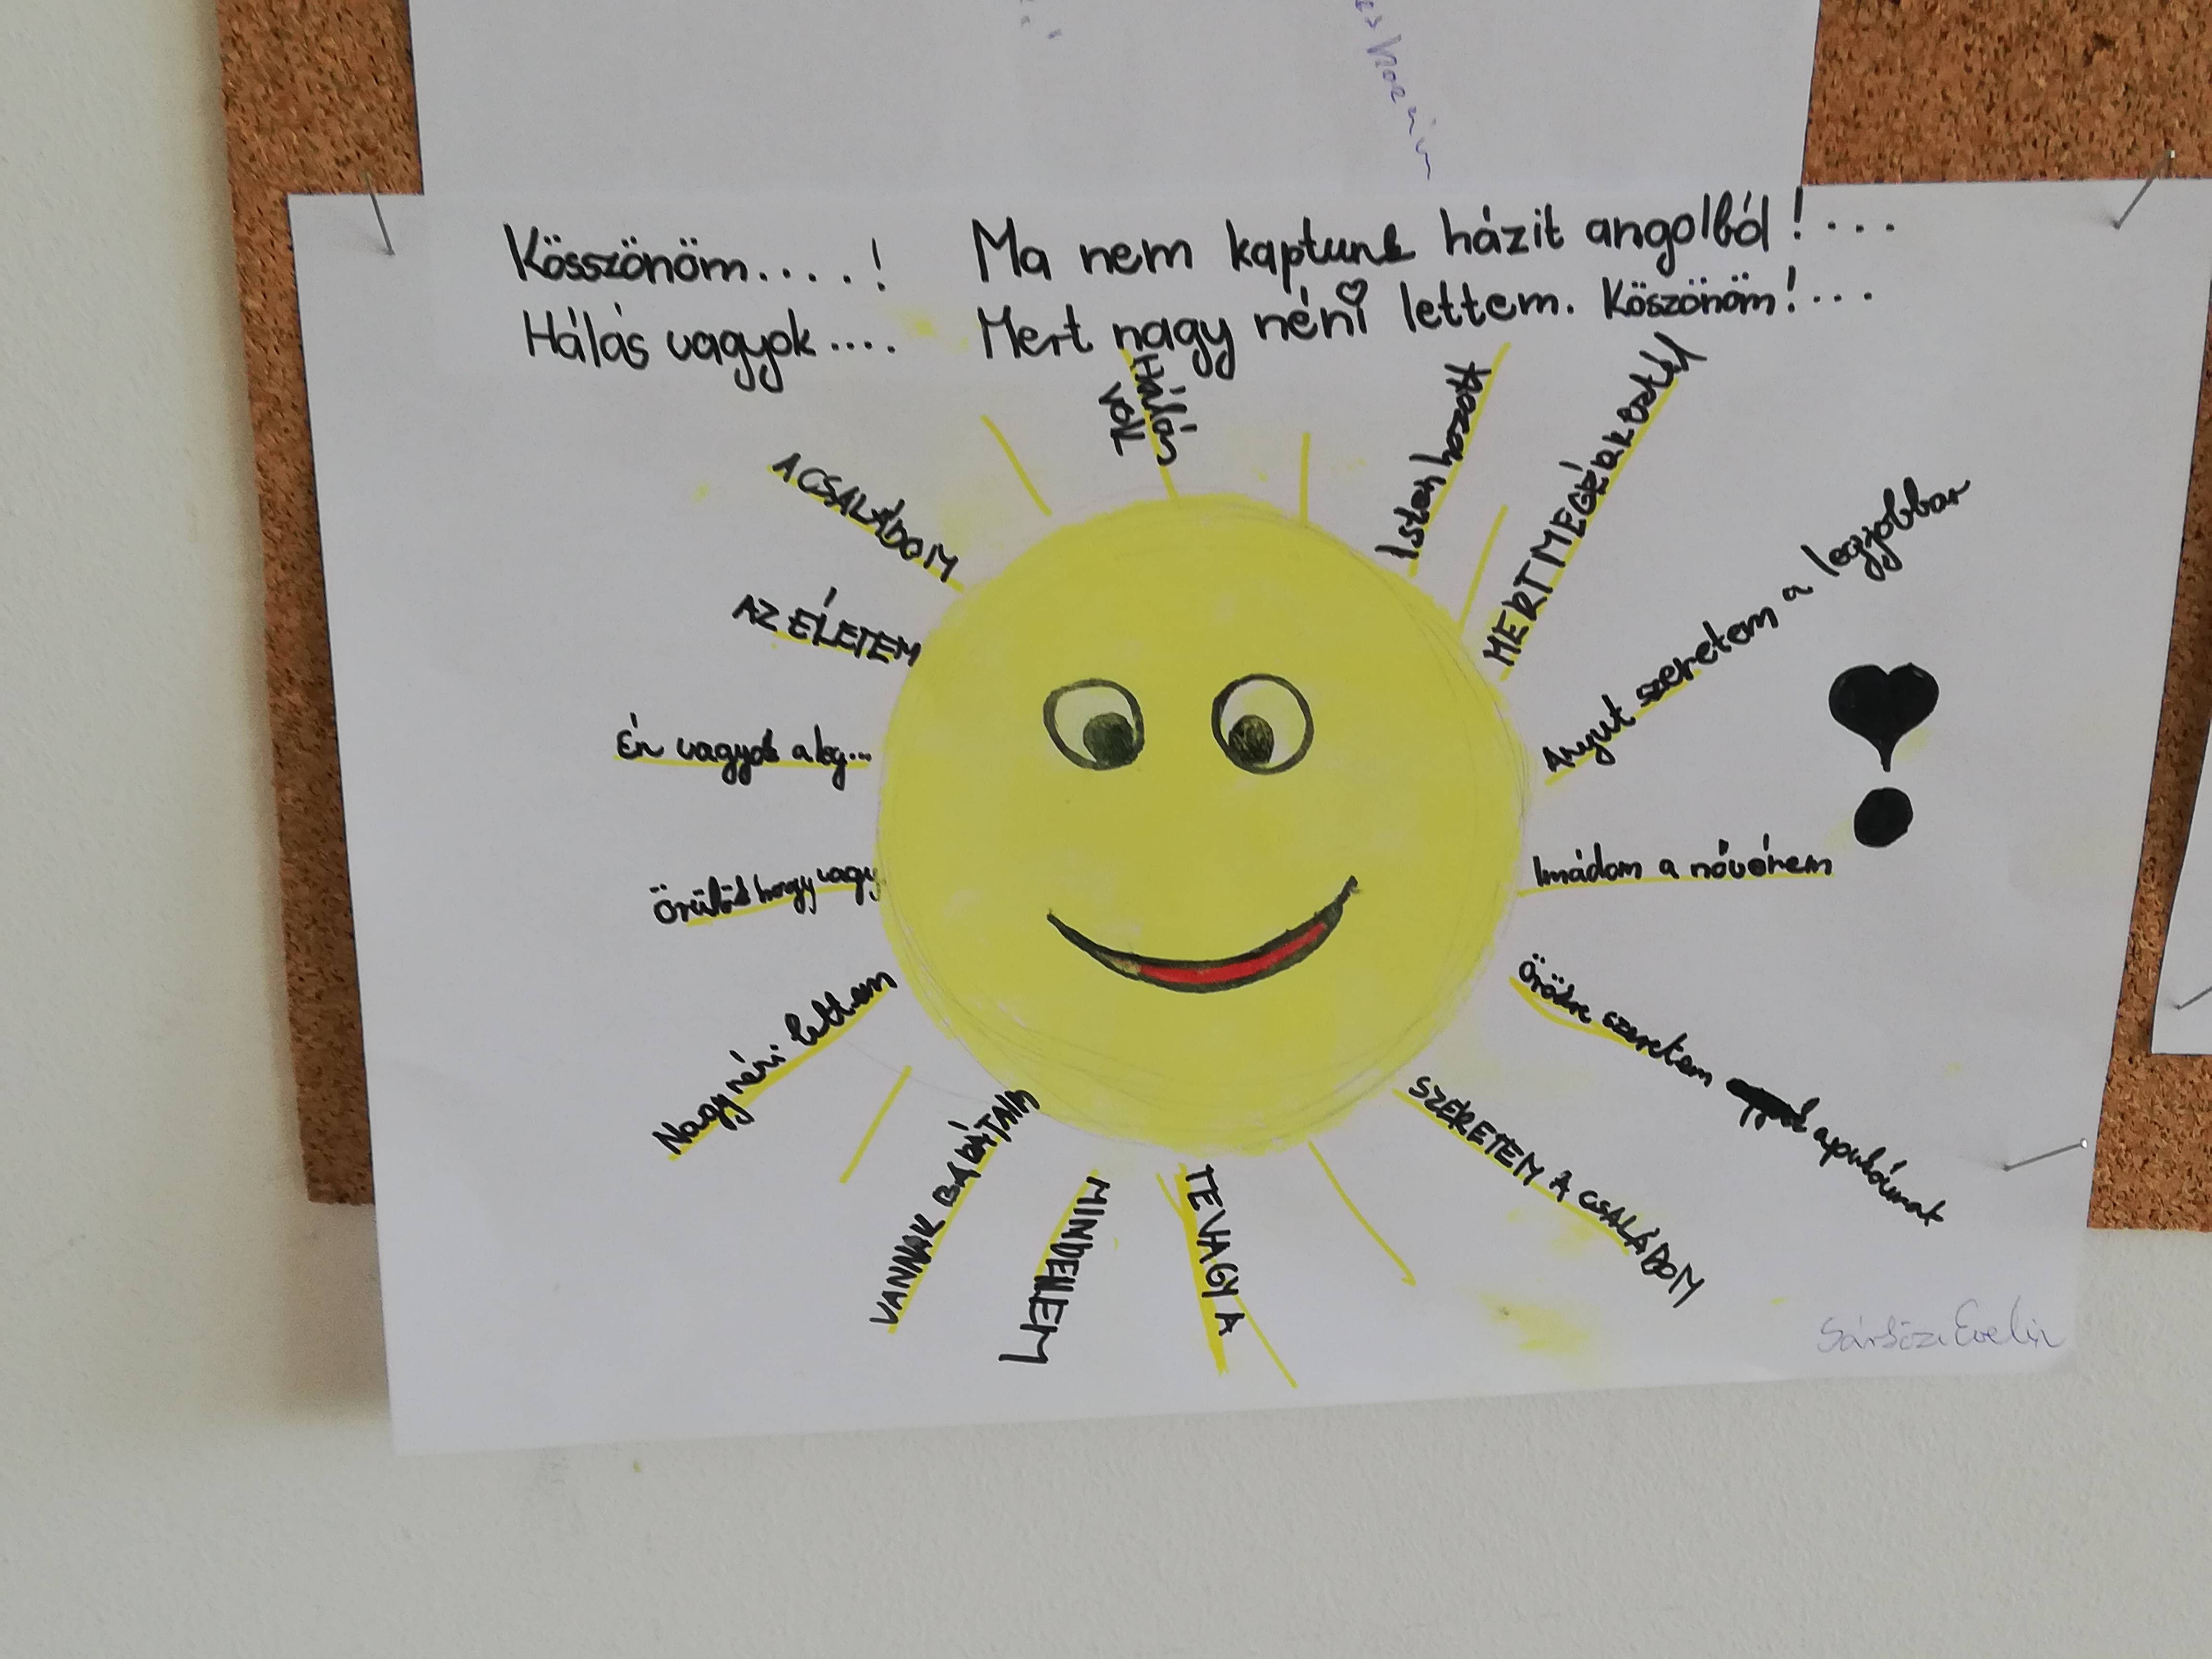 Kösszönöm....! Ma nem kaptunk házit angolból!...
Hálás vagyok.... Mert nagy néni lettem. Köszönöm!...
Hálás
vok
Isten hozott
MERT MEGÉRKEZTÉL
Anyut szeretem a legjobban
Imádom a nővérem
Örökre szeretem apukámat
SZERETEM A CSALÁDOM
TE VAGY A
MINDENEM
VANNAK BARÁTAIM
Nagy néni lettem
Örülök hogy vagy
Én vagyok a leg...
AZ ÉLETEM
A CSALÁDOM
Sárközi Evelin